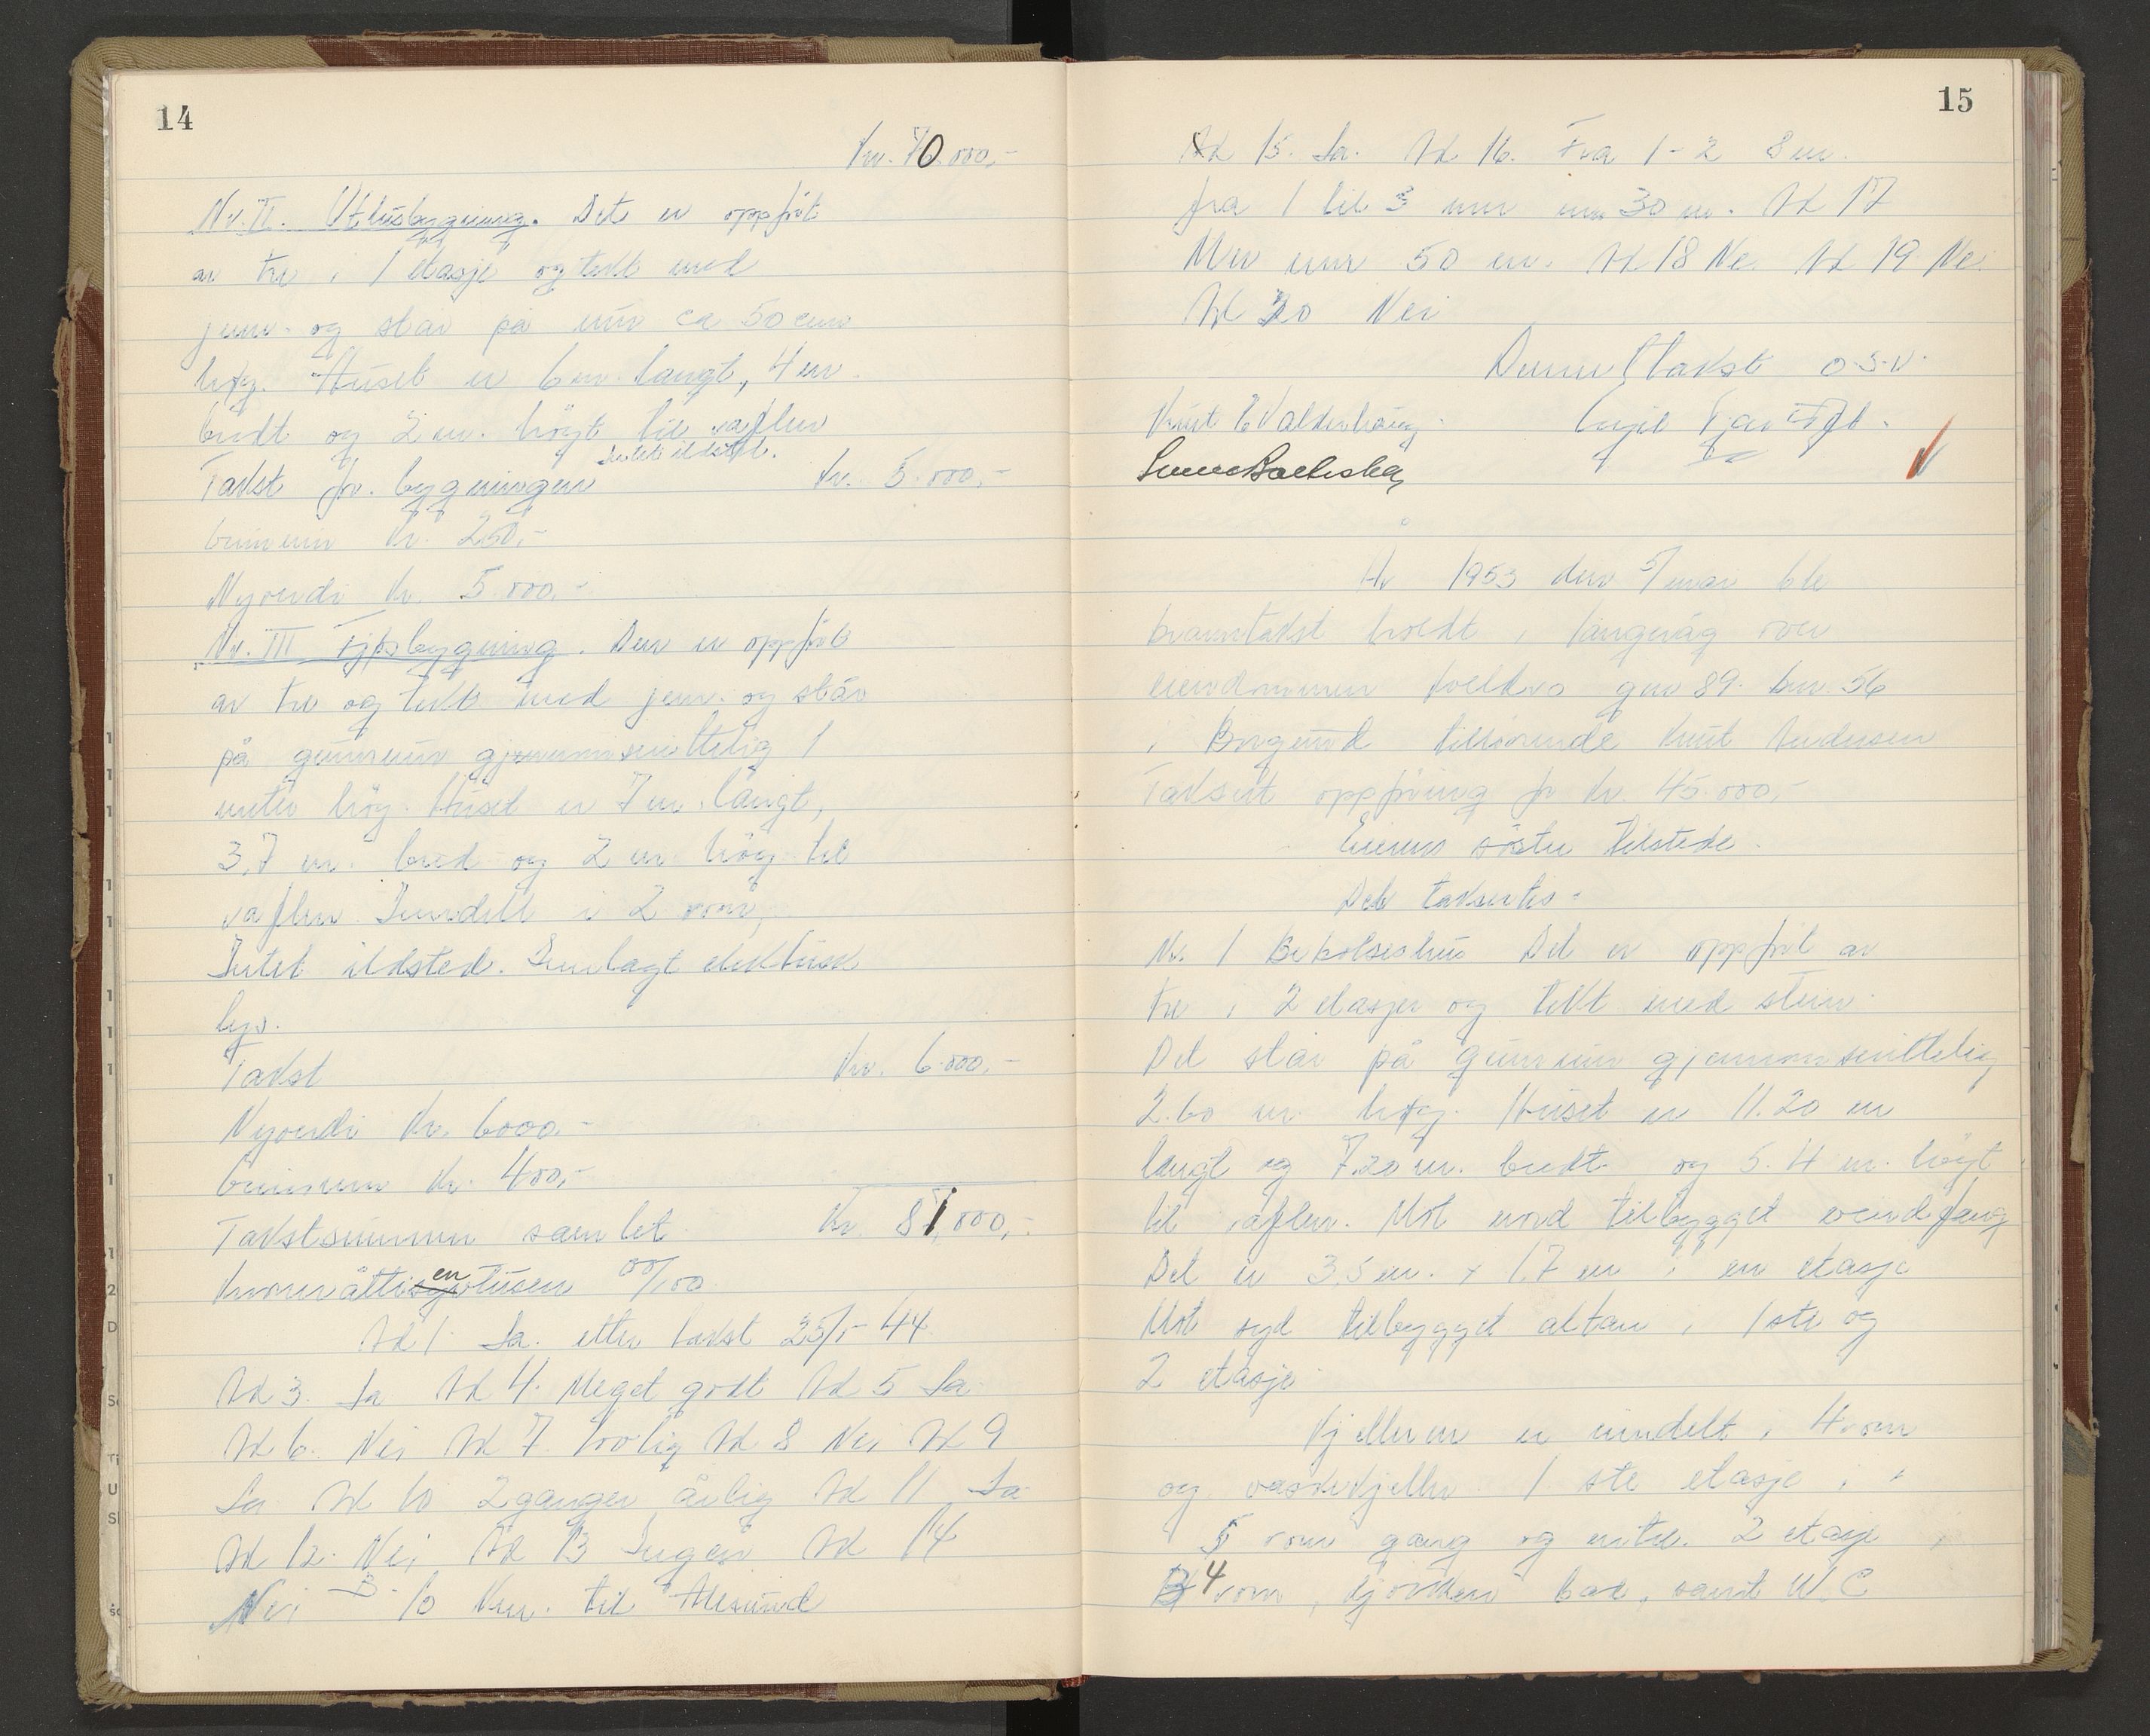 14
Kr. 70.000,-
Nr. II. Uthusbygning. Det er oppført
av tre i 1 etasje og tekt med
jern. og står på mur ca 50 cm
høg. Huset er 6 m. langt, 4 m.
bredt og 2 m. høgt til raften
Intet ildsted.
Takst for bygningen Kr. 5.000,-
Grunnmur Kr. 250,-
Nyverdi Kr. 5.000,-
Nr. III Fjøsbygning. Den er oppført
av tre og tekt med jern. og står
på grunnmur gjennomsnittelig 1
meter høg. Huset er 7 m. langt,
3,7 m. bred og 2 m høg til
raften. Inndelt i 2 rom,
Intet ildsted. Innlagt elektrisk
lys.
Takst Kr. 6.000,-
Nyverdi Kr. 6000.-
Grunnmur Kr. 400,-
Takstsummen samlet Kr. 81,000,-
Kroner åttien tusen 00/100
Ad 1. Ja. etter takst 25/1- 44
Ad 3. Ja Ad 4. Meget godt Ad 5 Ja.
Ad 6. Nei Ad 7. Rolig Ad 8 Nei Ad 9
Ja Ad 10 2 ganger årlig Ad 11 Ja
Ad 12. Nei Ad 13 Ingen Ad 14
Nei 10 Km. til Ålesund
15
Ad 15. Ja. Ad 16. Fra 1-2 8 m.
fra 1 til 3 mer enn 30 m. Ad 17
Mer enn 50 m. Ad 18 Nei Ad 19 Nei.
Ad 20 Nei
Denne takst o.s.v.
Knut E Valderhaug.
År 1953 den 5/mai ble
branntakst holdt i Langevåg over
eiendommen Kveldro gnr 89. bnr. 56
i Borgund tilhørende Knut Andersen
Taksert oppføring for Kr. 45.000,-
Eierens søster tilstede.
Det takseres.
Nr. 1 Beboelseshus Det er oppført av
tre i 2 etasjer og tekt med stein.
Det står på grunnmur gjennomsnittelig
2.60 m. høg. Huset er 11.20 m
langt og 7.20 m. bredt og 5.4 m. høgt
til raften. Mot nord tilbygget veindfang
Det er 3.5 m. x 1.7 m i en etasje
Mot syd tilbygget altan i 1ste og
2 etasje
Kjelleren er inndelt i 4 rom
og vaskekjeller 1 ste etasje i
5 rom gang og entre. 2 etasje
4 rom, kjøkken bad, samt W.C